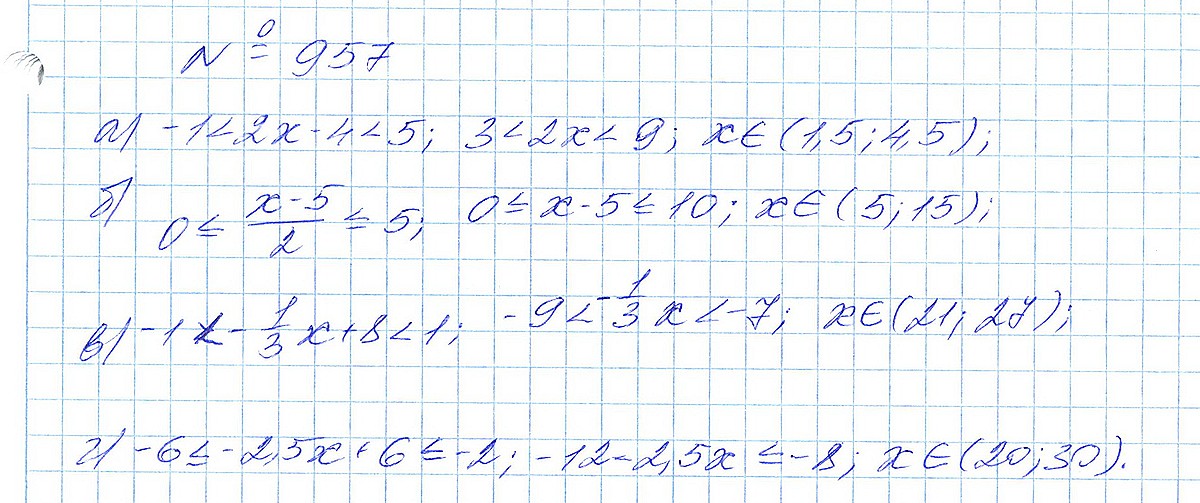 № 957
а) -1 < 2x - 4 < 5; 3 < 2x < 9; x ∈ (1,5; 4,5);
б) 0 ≤ (x-5)/2 ≤ 5; 0 ≤ x - 5 ≤ 10; x ∈ (5; 15);
в) -1 < -1/3 x + 8 < 1; -9 < -1/3 x < -7; x ∈ (21; 27);
г) -6 ≤ -2,5x + 6 ≤ -2; -12 - 2,5x ≤ -8; x ∈ (20; 30).